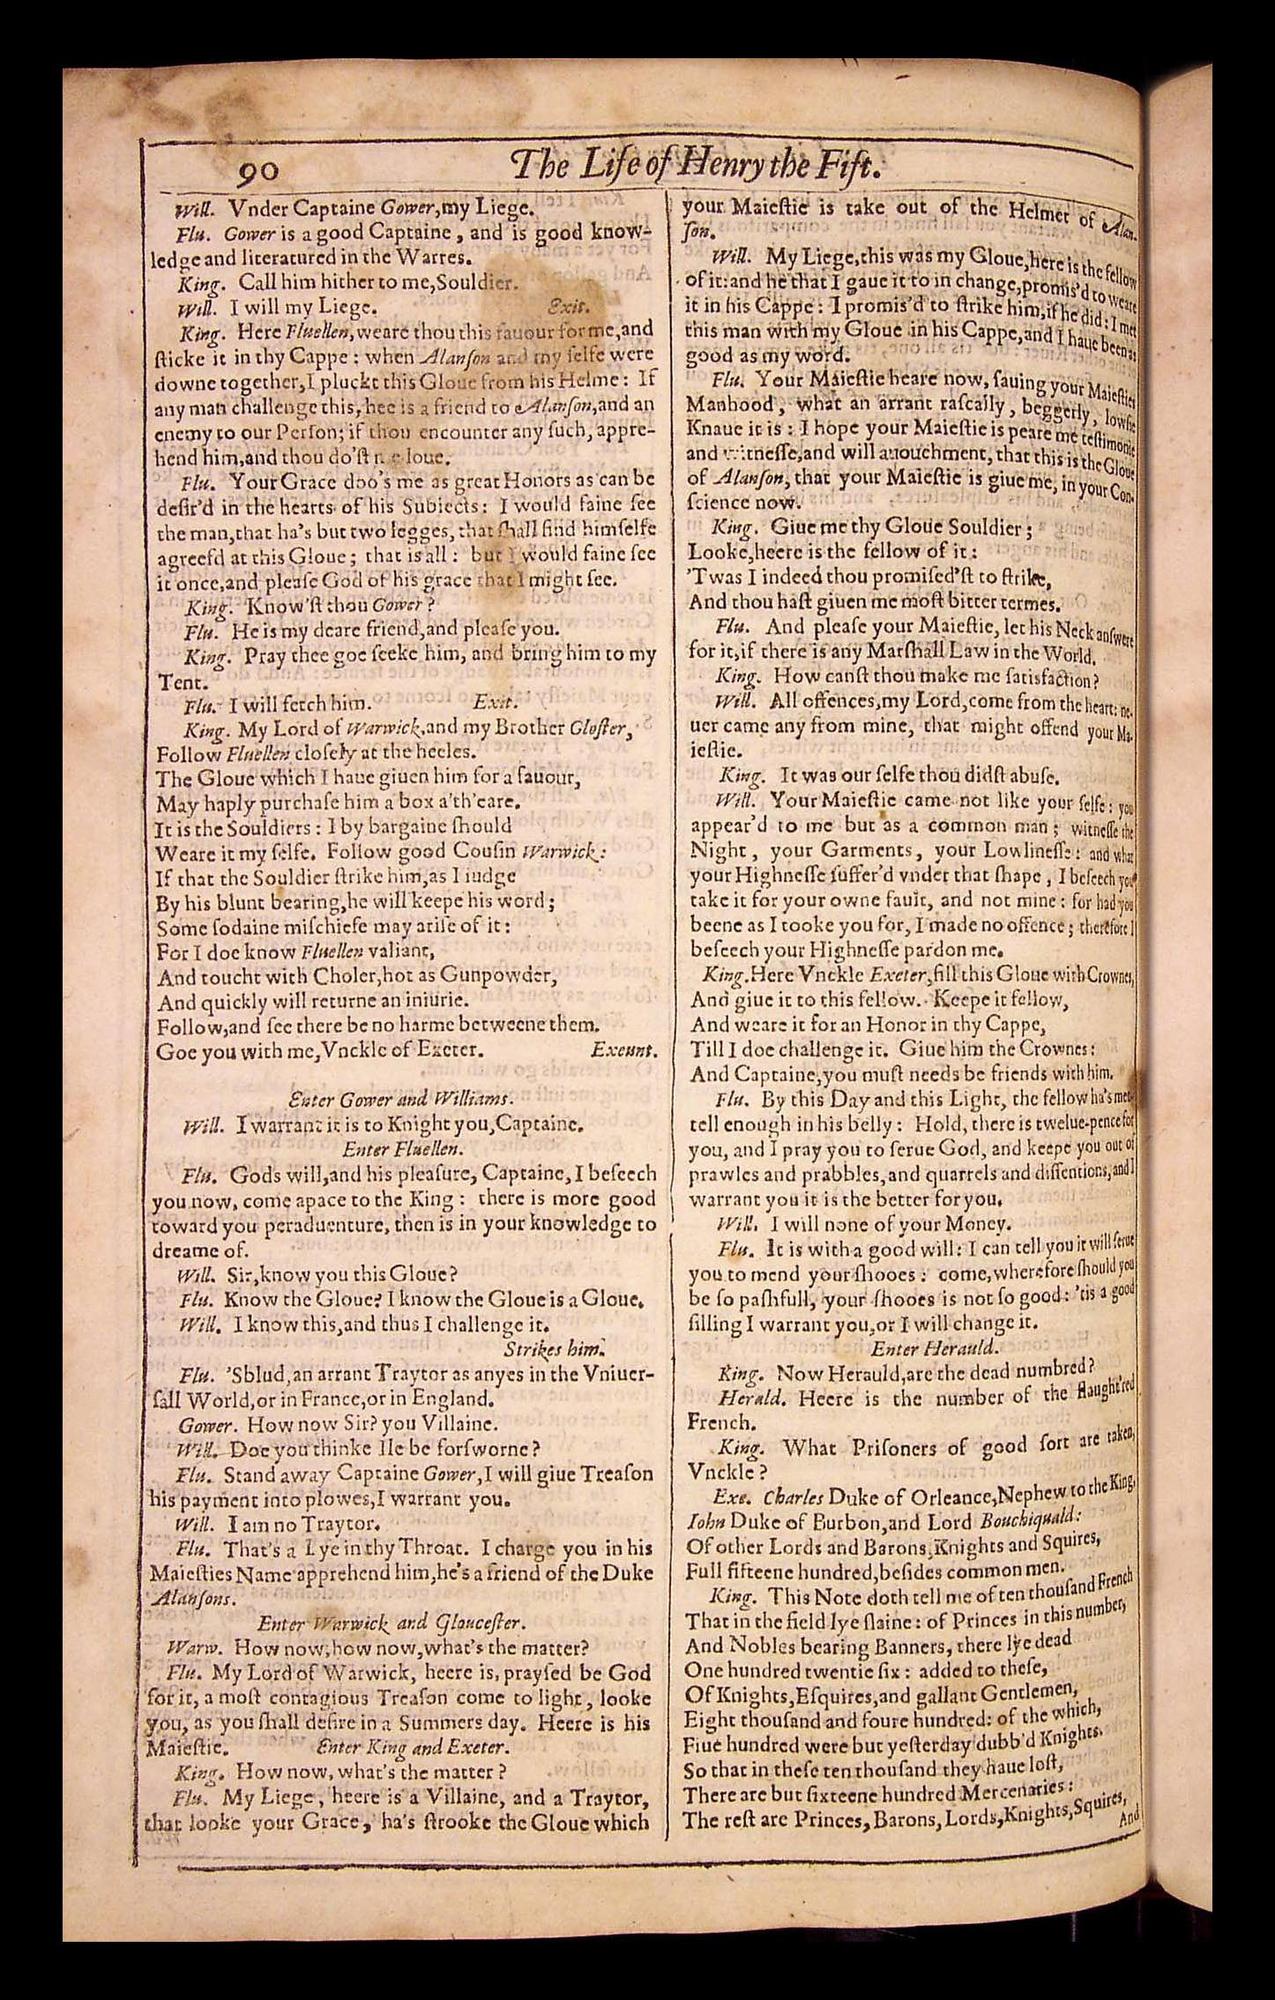 90
The Life of Henry the Fift.
Will. Vnder Captaine Gower, my Liege.
Flu. Gower is a good Captaine, and is good know-
ledge and literatured in the Warres.
King. Call him hither to me, Souldier.
Will. I will my Liege. Exit.
King. Here Fluellen, weare thou this fauour for me, and
sticke it in thy Cappe: when Alanson and my selfe were
downe together, I pluckt this Gloue from his Helme: If
any man challenge this, hee is a friend to Alanson, and an
enemy to our Person; if thou encounter any such, appre-
hend him, and thou do'st me loue.
Flu. Your Grace doo's me as great Honors as can be
desir'd in the hearts of his Subiects: I would faine see
the man, that ha's but two legges, that shall find himselfe
agreefd at this Gloue; that is all: but I would faine see
it once, and please God of his grace that I might see.
King. Know'st thou Gower?
Flu. He is my deare friend, and please you.
King. Pray thee goe seeke him, and bring him to my
Tent.
Flu. I will fetch him. Exit.
King. My Lord of Warwick, and my Brother Gloster,
Follow Fluellen closely at the heeles.
The Gloue which I haue giuen him for a fauour,
May haply purchase him a box a'th'eare.
It is the Souldiers: I by bargaine should
Weare it my selfe. Follow good Cousin Warwick:
If that the Souldier strike him, as I iudge
By his blunt bearing, he will keepe his word;
Some sodaine mischiefe may arise of it:
For I doe know Fluellen valiant,
And toucht with Choler, hot as Gunpowder,
And quickly will returne an iniurie.
Follow, and see there be no harme betweene them.
Goe you with me, Vnckle of Exeter. Exeunt.
Enter Gower and Williams.
Will. I warrant it is to Knight you, Captaine.
Enter Fluellen.
Flu. Gods will, and his pleasure, Captaine, I beseech
you now, come apace to the King: there is more good
toward you peraduenture, then is in your knowledge to
dreame of.
Will. Sir, know you this Gloue?
Flu. Know the Gloue? I know the Gloue is a Gloue.
Will. I know this, and thus I challenge it.
Strikes him.
Flu. 'Sblud, an arrant Traytor as anyes in the Vniuer-
sall World, or in France, or in England.
Gower. How now Sir? you Villaine.
Will. Doe you thinke Ile be forsworne?
Flu. Stand away Captaine Gower, I will giue Treason
his payment into plowes, I warrant you.
Will. I am no Traytor.
Flu. That's a Lye in thy Throat. I charge you in his
Maiesties Name apprehend him, he's a friend of the Duke
Alansons.
Enter Warwick and Gloucester.
Warw. How now, how now, what's the matter?
Flu. My Lord of Warwick, heere is, praysed be God
for it, a most contagious Treason come to light, looke
you, as you shall desire in a Summers day. Heere is his
Maiestie. Enter King and Exeter.
King. How now, what's the matter?
Flu. My Liege, heere is a Villaine, and a Traytor,
that looke your Grace, ha's strooke the Gloue which
your Maiestie is take out of the Helmet of Alan-
son.
Will. My Liege, this was my Gloue, here is the fellow
of it: and he that I gaue it to in change, promis'd to weare
it in his Cappe: I promis'd to strike him, if he did: I met
this man with my Gloue in his Cappe, and I haue been as
good as my word.
Flu. Your Maiestie heare now, sauing your Maiesties
Manhood, what an arrant rascally, beggerly, lowsie
Knaue it is: I hope your Maiestie is peare me testimonie
and witnesse, and will auouchment, that this is the Gloue
of Alanson, that your Maiestie is giue me, in your Con-
science now.
King. Giue me thy Gloue Souldier;
Looke, heere is the fellow of it:
'Twas I indeed thou promised'st to strike,
And thou hast giuen me most bitter termes.
Flu. And please your Maiestie, let his Neck answere
for it, if there is any Marshall Law in the World.
King. How canst thou make me satisfaction?
Will. All offences, my Lord, come from the heart: ne-
uer came any from mine, that might offend your Ma-
iestie.
King. It was our selfe thou didst abuse.
Will. Your Maiestie came not like your selfe: you
appear'd to me but as a common man; witnesse the
Night, your Garments, your Lowlinesse: and what
your Highnesse suffer'd vnder that shape, I beseech you
take it for your owne fault, and not mine: for had you
beene as I tooke you for, I made no offence; therefore I
beseech your Highnesse pardon me.
King. Here Vnckle Exeter, fill this Gloue with Crownes,
And giue it to this fellow. Keepe it fellow,
And weare it for an Honor in thy Cappe,
Till I doe challenge it. Giue him the Crownes:
And Captaine, you must needs be friends with him.
Flu. By this Day and this Light, the fellow ha's met-
tell enough in his belly: Hold, there is twelue-pence for
you, and I pray you to serue God, and keepe you out of
prawles and prabbles, and quarrels and dissentions, and I
warrant you it is the better for you.
Will. I will none of your Money.
Flu. It is with a good will: I can tell you it will serue
you to mend your shooes: come, wherefore should you
be so pashfull, your shooes is not so good: 'tis a good
silling I warrant you, or I will change it.
Enter Herauld.
King. Now Herauld, are the dead numbred?
Herald. Heere is the number of the slaught'red
French.
King. What Prisoners of good sort are taken,
Vnckle?
Exe. Charles Duke of Orleance, Nephew to the King,
Iohn Duke of Burbon, and Lord Bouchiquald:
Of other Lords and Barons, Knights and Squires,
Full fifteene hundred, besides common men.
King. This Note doth tell me of ten thousand French
That in the field lye slaine: of Princes in this number,
And Nobles bearing Banners, there lye dead
One hundred twentie six: added to these,
Of Knights, Esquires, and gallant Gentlemen,
Eight thousand and foure hundred: of the which,
Fiue hundred were but yesterday dubb'd Knights.
So that in these ten thousand they haue lost,
There are but sixteene hundred Mercenaries:
The rest are Princes, Barons, Lords, Knights, Squires,
And